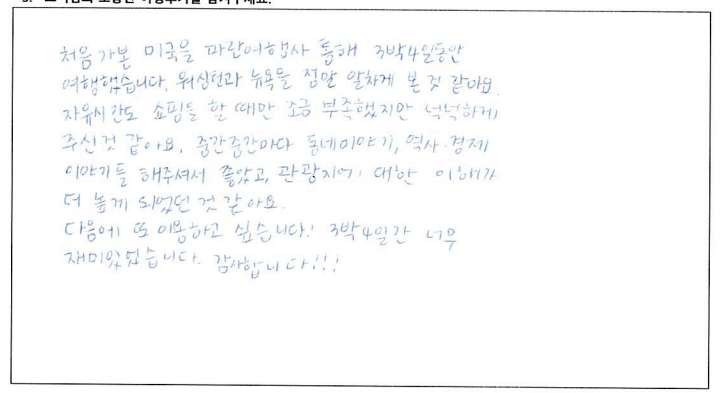 처음 가본 미국을 파란여행사 통해 3박4일동안
여행했습니다. 워싱턴과 뉴욕을 정말 알차게 본 것 같아요.
자유시간도 쇼핑을 할 때만 조금 부족했지만 넉넉하게
주신것 같아요. 중간중간마다 동네이야기, 역사·경제
이야기를 해주셔서 좋았고, 관광지에 대한 이해가
더 높게 되었던 것 같아요.
다음에 또 이용하고 싶습니다! 3박4일간 너무
재미있었습니다. 감사합니다!!!